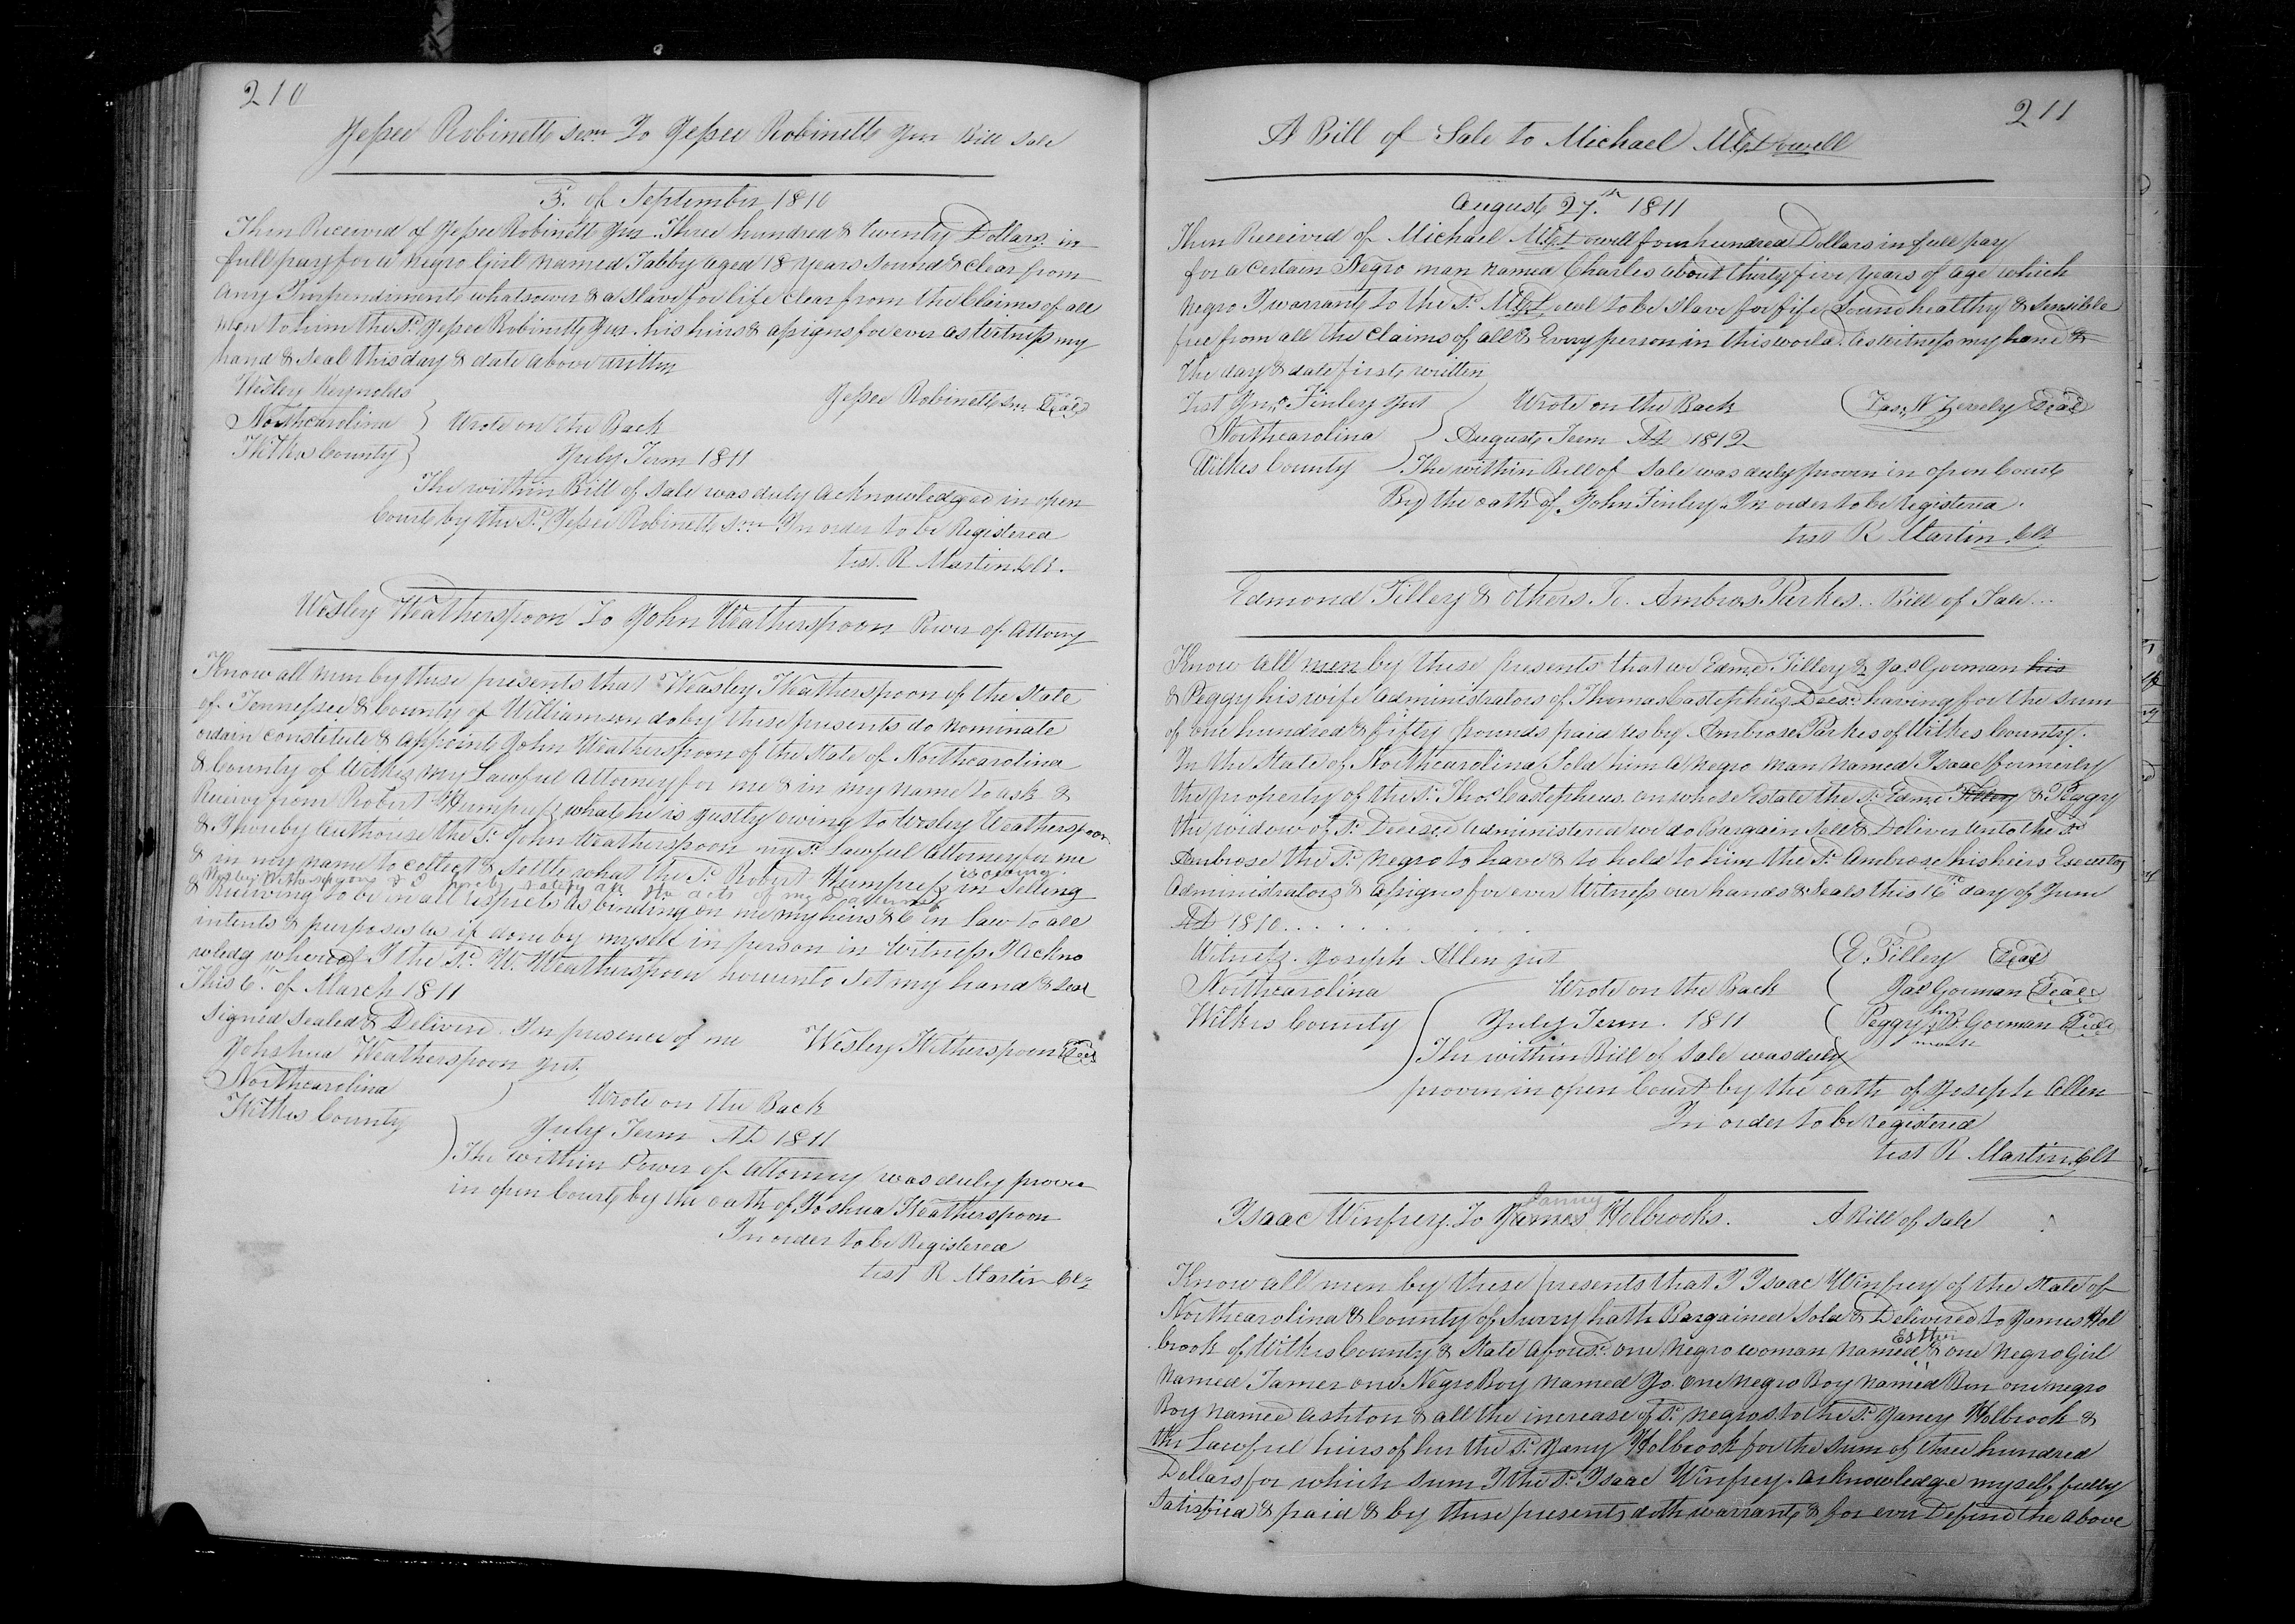 210
Jessee Robinett Senr. To Jessee Robinett Junr Bill Sale
5. of September 1810
Then Received of Jessee Robinett Jur Three hundred & twenty Dollars in
full pay for a negro Girl named Tabby aged 18 years Sound & clear from
any Impendiments whatsower & a Slave for life clear from the Claims of all
men to him the sd. Jessee Robinett Jur. his hirs & assigns for ever as witness my
hand & seal this day & date above written
Wesley Reynolds
Jessee Robinett Snr Seal
Northcarolina
Wilkes County
Wrote on the Back
July Term 1811
The within Bill of Sale was duly acknowledged in open
Court by the sd. Jessee Robinett Snr In order to be Registered
test. R Martin Clk.
Wesley Weatherspoon To John Weatherspoon Power of Attorny
Know all men by these presents that Weasley Weatherspoon of the State
of Tennessee & County of Williamson do by these presents do nominate
ordain constitute & appoint John Weatherspoon of the State of Northcarolina
& County of Wilkes my Lawful Attorney for me & in my name to ask &
Receive from Robert Humpress what he is justly owing to Wesley Weatherspoon
& I hereby authorise the sd. John Weatherspoon my sd. Lawful Attorney for me
& in my name to collect & settle what the sd. Robert Humpress is owing in Selling
Wesley Witherspoon & I hereby ratify all the acts of my sd attorney
& Receiving to be in all respects as binding on me my heirs & C in Law to all
intents & purposes as if done by myself in person in Witness I ackno
wledg whereof I the sd. W. Weatherspoon hereunto Set my hand & Seal
This 6th of March 1811
Signed Sealed & Deliverd In presence of me
Wesley Witherspoon Seal
Johshua Weatherspoon Jut.
Northcarolina
Wilkes County
Wrote on the Back
July Term AD 1811
The within Power of Attorney was duly proven
in open Court by the oath of Joshua Weatherspoon
In order to be Registered
test R Martin Clk
211
A Bill of Sale to Michael McDowell
August 27.th 1811
Then Received of Michael McDowell four hundred Dollars in full pay
for a Certain Negro man named Charles about thirty five years of age which
negro I warrant to the sd. McDowel to be Slave for life Sound healthy & Sensible
free from all the Claims of all & Every person in this world. As witness my hand &
the day & date first written
Test Jno. Finley Jut
Jas. N Zevely Seal
Wrote on the Back
Northcarolina
Wilkes County
August Term AD 1812
The within Bill of Sale was duly proven in open Court
By the oath of John Finley. In order to be registered.
test R Martin Clk
Edmond Tilley & Others To. Ambros Parkes.. Bill of Sale...
Know all men by these presents that we Edmd. Tilley & Jas Gorman his
& Peggy his wife administrators of Thomas Castephus Decsd. having for the sum
of one hundred & fifty pounds paid us by Ambrose Parkes of Wilkes County.
In the State of Northcarolina Sold him a negro man named Isaac formerly
the property of the sd. Thos. Castephens on whose Estate the sd. Edmd Tilley & Peggy
the widow of sd. Decesd. administered we do Bargain Sell & Deliver Unto the sd
Ambrose the sd. negro to have & to hold to him the sd. Ambrose his heirs Executors
Administrators & assigns for ever Witness our hands & Seals this 16th day of June
AD 1810. . . . . .
Witness. Joseph Allen Jut
E. Tilley Seal
Northcarolina
Wilkes County
Wrote on the Back
Jas Gorman Seal
July Term. 1811
Peggy her mark Gorman Seal
The within Bill of Sale was duly
proven in open Court by the oath of Joseph Allen
In order to be registered
test R Martin Clk
Isaac Winfrey. To James Janny Holbrooks. A Bill of Sale
Know all men by these presents that I Isaac Winfrey of the State of
Northcarolina & County of Surry hath Bargained Sold & Delivered to James Hol
brook of Wilkes County & State afousd. one Negro woman named Esther & one negro Girl
named Tamer one Negro Boy named Jo. one negro Boy named Ben one negro
Boy named Ashton & all the increase of sd. negros. to the sd. Janey Holbrook &
the Lawful heirs of her the sd. Jany Holbrook for the sum of three hundred
Dollars for which sum I the sd. Isaac Winfrey. acknowledge myself fully
satisfied & paid & by these presents doth warrant & for ever Defend the above